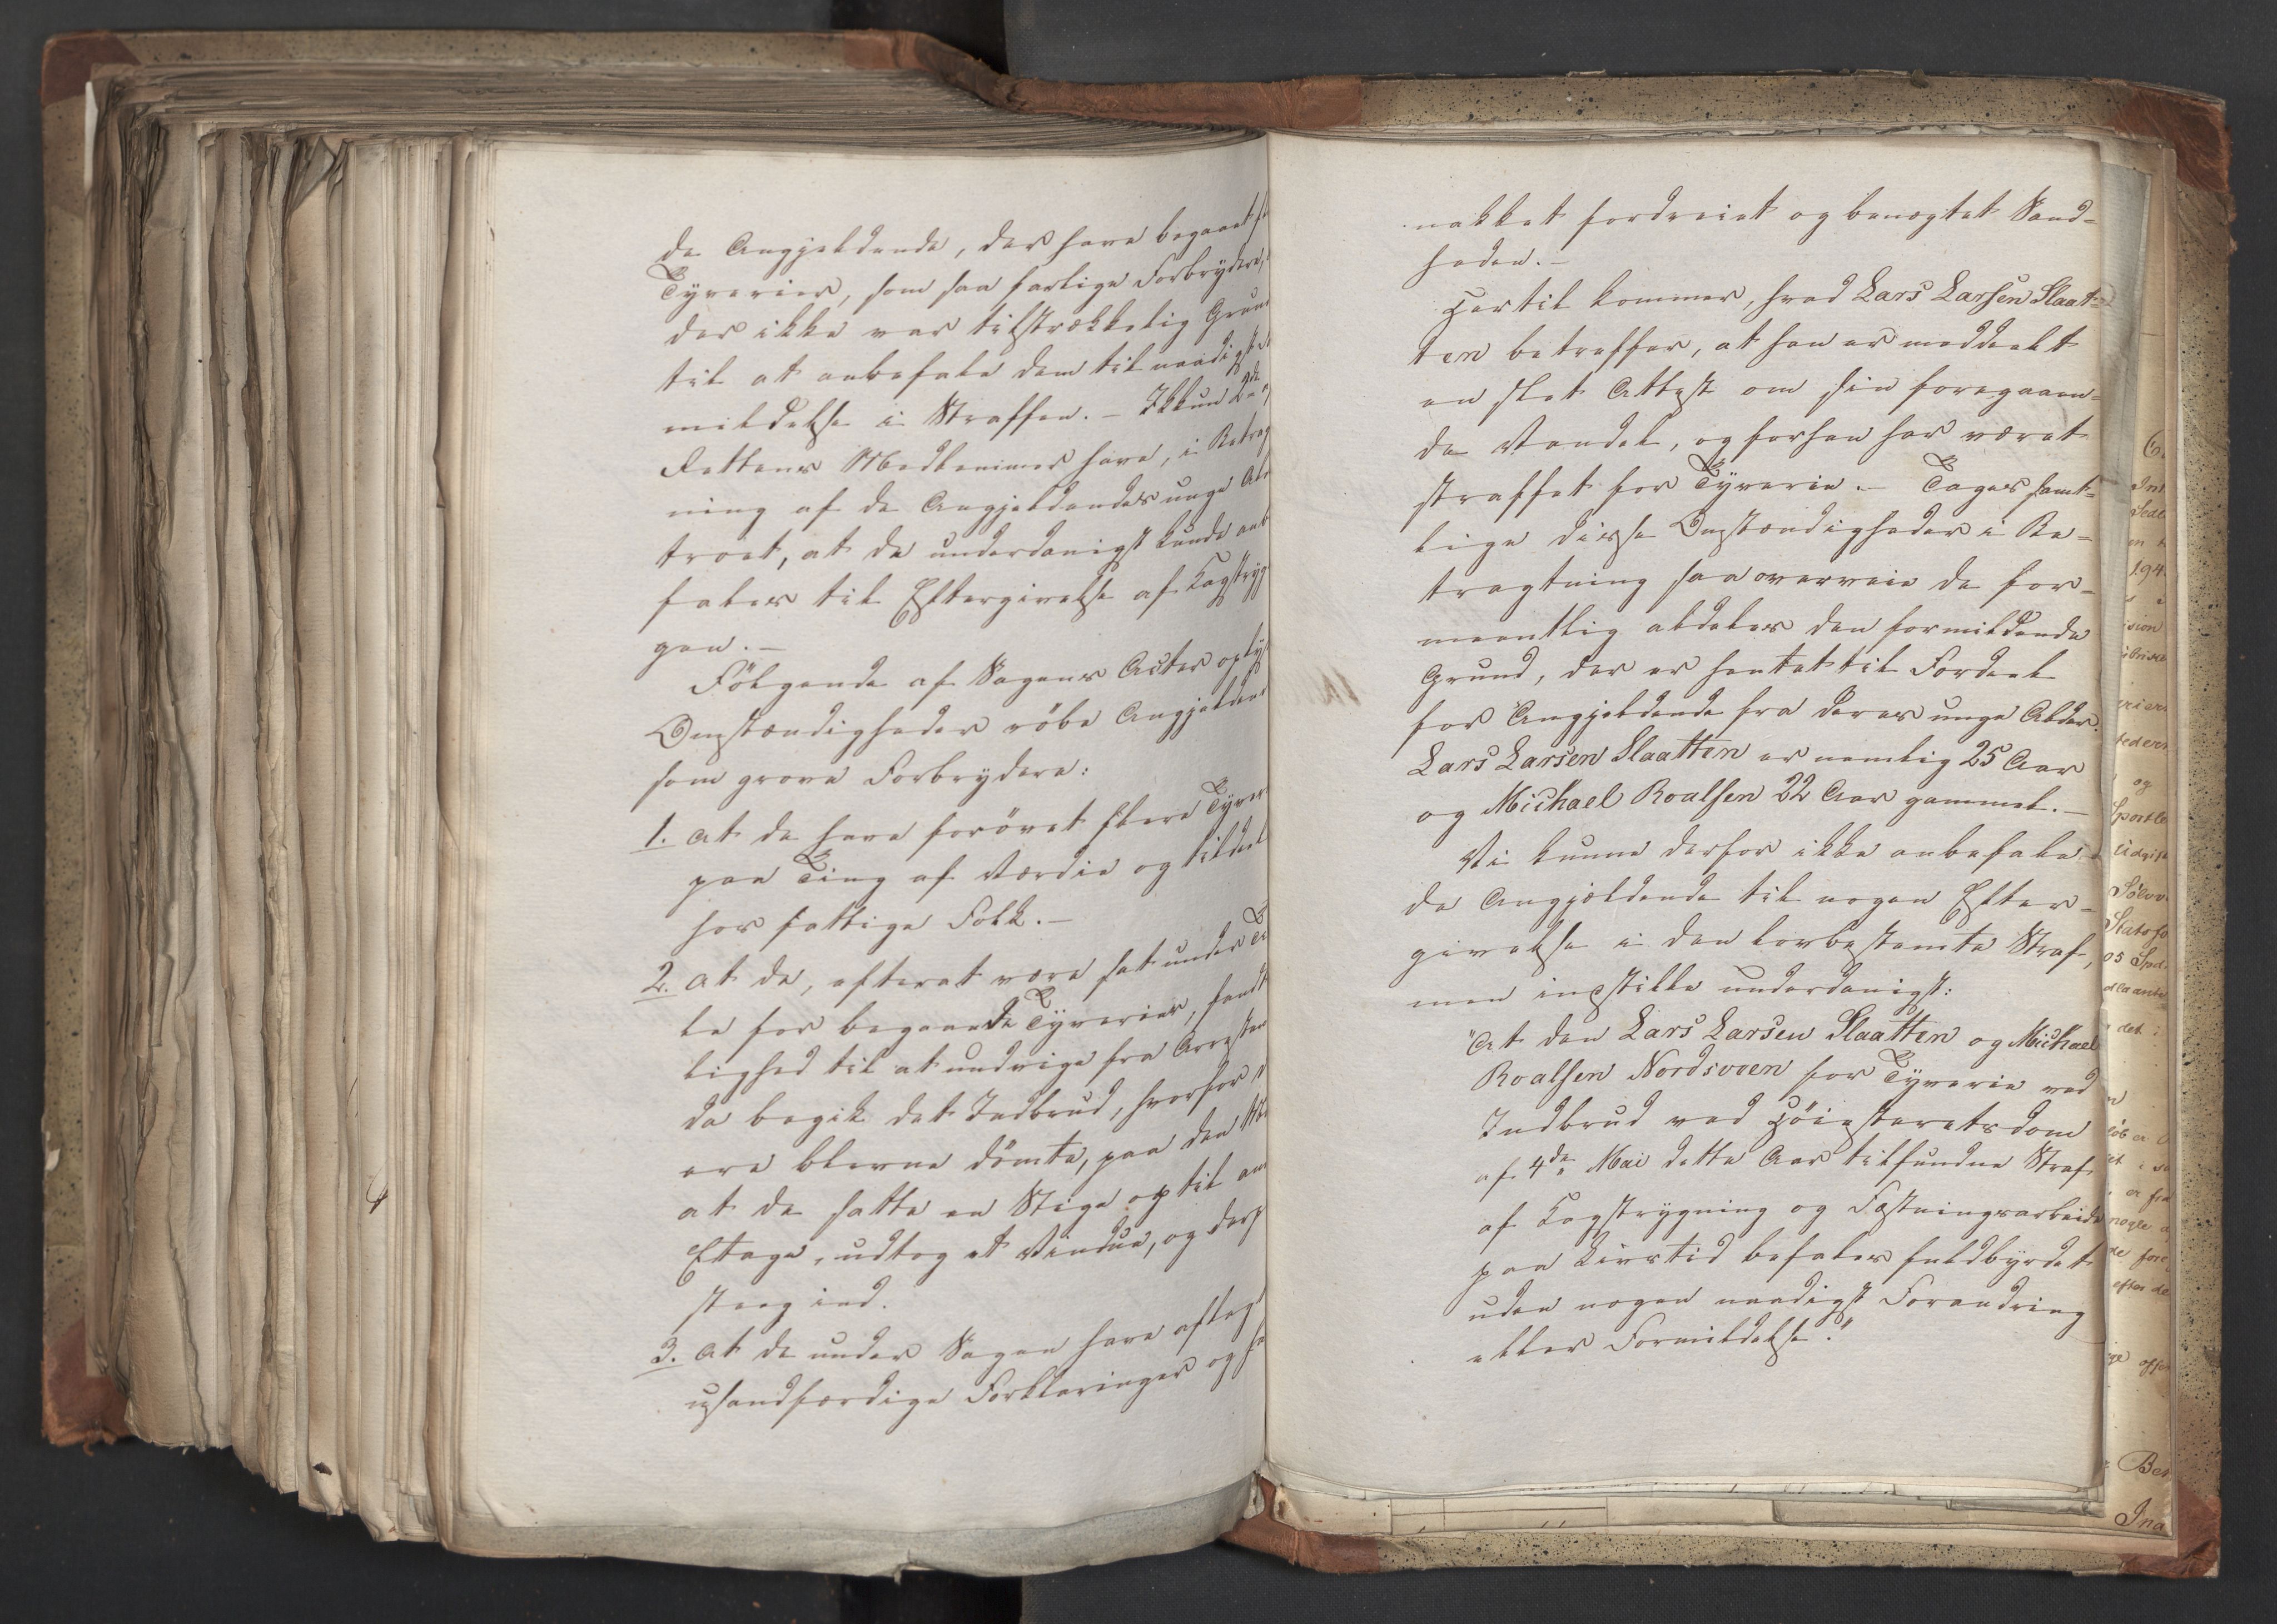 de Angjeldende, der have begaaet
Tyverier, som saa farlige Forbrydere,
der ikke var tilstrækkelig Grun
til at anbefale dem til naadigst
mildelse i Straffen. – Ikkun 2de
Rettens Medlemmer have, i Betrag
ning af de Angjeldendes unge Al
troet, at de underdanigst kunde anb
fales til Eftergivelse af Kagstryg
gen. –
Følgende af Sagens Acter oply
Omstændigheder røbe Angjelden
som grove Forbrydere:
1. at de have forøvet flere Tyver
paa Ting af Værdie og tildeel
hos fattige Folk. –
2. at de, efterat være sat under Ti
le for begaaede Tyverier, fandt
lighed til at undvige fra Arresten
da begik det Indbrud, hvorfor
ere blevne dømte, paa den
at de satte en Stige op til an
Etage, udtog et Vindue, og der
steeg ind.
3. at de under Sagen have aflagt
usandfærdige Forklaringer og
nakket fordreiet og benægtet Sand=
heden. –
Hertil kommer, hvad Lars Larsen Slaat=
ten betreffer, at han er meddeelt
en slet Attest om sin foregaaen=
de Vandel, og forhen har været
straffet for Tyverie. – Tages samt=
lige disse Omstændigheder i Be=
tragtning saa overveie de for=
meentlig aldeles den formildende
Grund, der er hentet til Fordeel
for Angjeldende fra deres unge Alder.
Lars Larsen Slaatten er nemlig 25 Aar
og Michael Roalsen 22 Aar gammel. –
Vi kunne derfor ikke anbefale
de Angjældende til nogen Efter=
givelse i den lovbestemte Straf,
men inpstille underdanigst:
"At den Lars Larsen Slaatten og Michael
Roalsen Nordsveen for Tyverie ved
Indbrud ved Høiesteretsdom
af 4de Mai dette Aar tilfundne Straf
af Kagstrygning og Fæstningsarbeide
paa Livstid befales fuldbyrdet
uden nogen naadigst Forandring
eller Formildelse."